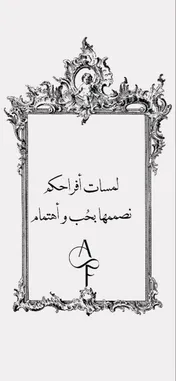 لمسات أفراحكم
نصممها بحُب و أهتمام
A
F